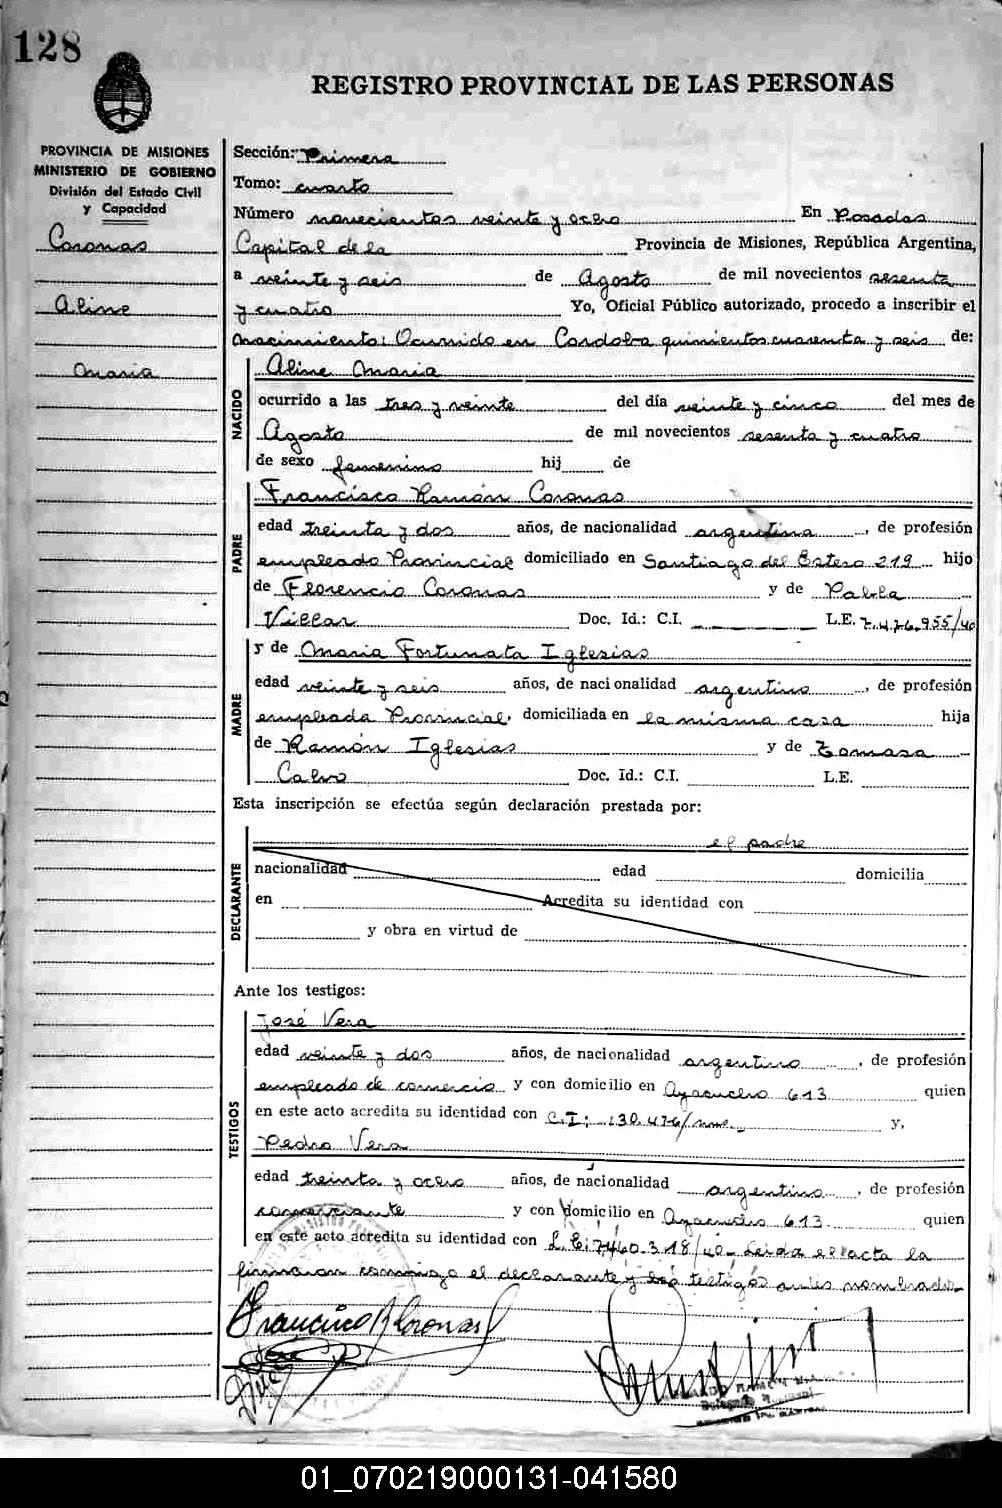 128
REGISTRO PROVINCIAL DE LAS PERSONAS
PROVINCIA DE MISIONES
MINISTERIO DE GOBIERNO
División del Estado Civil
y Capacidad
Coronas
Aline
Maria
Sección: Primera
Tomo: cuarto
Número novecientos veinte y ocho En Posadas
Capital de la Provincia de Misiones, República Argentina,
a veinte y seis de Agosto de mil novecientos sesenta
y cuatro Yo, Oficial Público autorizado, procedo a inscribir el
nacimiento: Ocurrido en Cordoba quinientos cuarenta y seis de:
NACIDO
Aline Maria
ocurrido a las tres y veinte del día veinte y cinco del mes de
Agosto de mil novecientos sesenta y cuatro
de sexo femenino hij de
PADRE
Francisco Ramón Coronas
edad treinta y dos años, de nacionalidad argentina, de profesión
empleado Provincial domiciliado en Santiago del Estero 219 hijo
de Florencio Coronas y de Pabla
Villar Doc. Id.: C.I. L.E. 7.476.955/40
MADRE
y de Maria Fortunata Iglesias
edad veinte y seis años, de nacionalidad argentina, de profesión
empleada Provincial. domiciliada en la misma casa hija
de Ramón Iglesias y de Tomasa
Calvo Doc. Id.: C.I. L.E.
Esta inscripción se efectúa según declaración prestada por:
DECLARANTE
el padre
nacionalidad edad domicilia
en Acredita su identidad con
y obra en virtud de
Ante los testigos:
TESTIGOS
José Vera
edad veinte y dos años, de nacionalidad argentino, de profesión
empleado de comercio y con domicilio en Ayacucho 613 quien
en este acto acredita su identidad con C.I: 130.476/ y,
Pedro Vera
edad treinta y ocho años, de nacionalidad argentino, de profesión
comerciante y con domicilio en Ayacucho 613 quien
en este acto acredita su identidad con L.E. 7460.318/40- Leida el acta la
firman conmigo el declarante y los testigos antes nombrados-
Francisco R Coronas
01_070219000131-041580